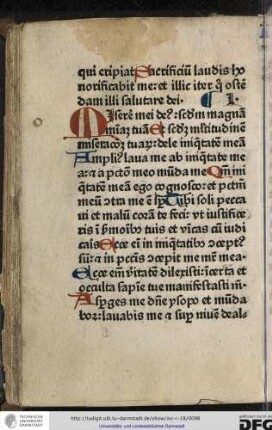 qui eripiat Sacrificiũ laudis ho
norificabit me: et illic iter q̃ osteñ
dam illi salutare dei.
Iserẽ mei de9: scdm magnã
miaʒ tuã Et scdʒ mltitudinẽ
miseracoʒ tuaꝝ: dele iniq̃tatẽ meã
Ampli9 laua me ab iniq̃tate me
a: ⁊ a pctõ meo mũda me Qm̃ ini
q̃tatẽ meã ego cognosco: et pctm̃
meũ ɔtra me ẽ Tibi soli pecca
ui et malũ corã te feci: vt iustifice
ris ĩ ẜmoĩbꝰ tuis et vĩcas cũ iudi
cais Ecce eñ in iniq̃tatibꝰ ɔcept9
sũ: ⁊ in pctis ɔcepit me mr̃ mea.
Ecce em̃ v̾itatẽ dilexisti: ĩcerta et
occulta sapie tue manifestasti m̃.
Aspges me dñe ysopo et mũda
bor: lauabis me ⁊ sup niuẽ deal-
http://tudigit.ulb.tu-darmstadt.de/show/inc-i-18/0098
Universitäts- und Landesbibliothek Darmstadt
TECHNISCHE
UNIVERSITÄT
DARMSTADT
gefördert durch die
DFG